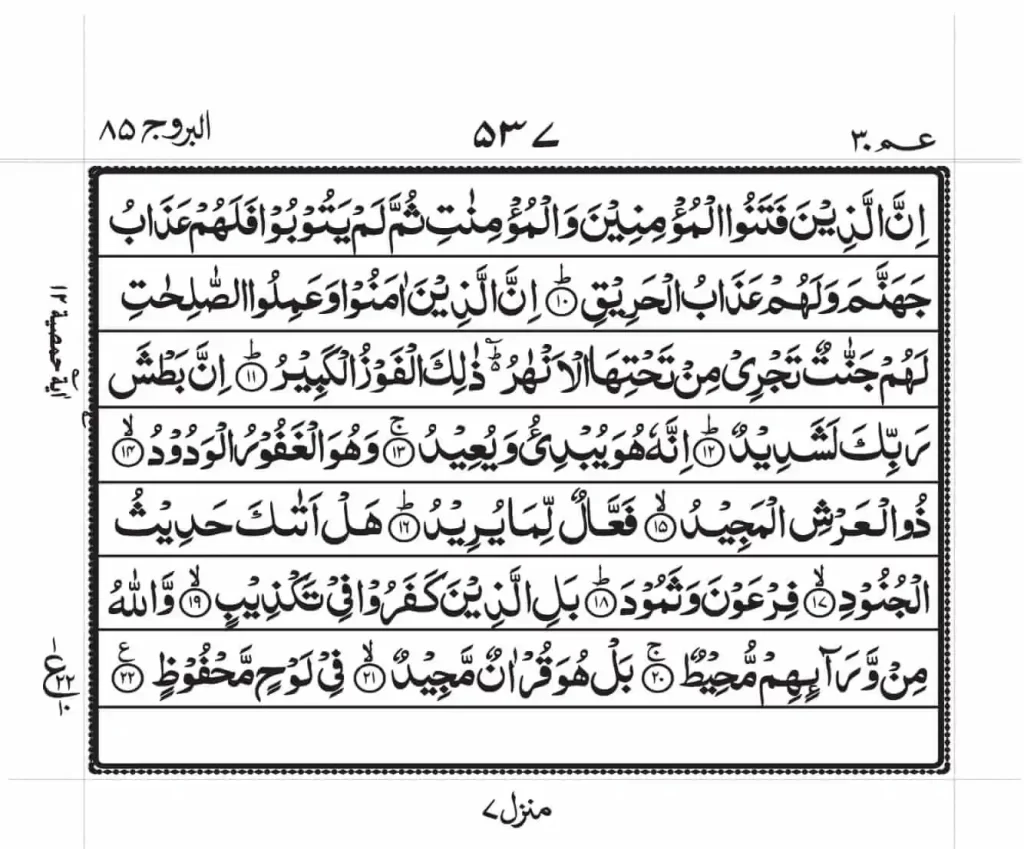 عـم ٣٠
٥٣٧
البروج ٨٥
اِنَّ الَّذِيْنَ فَتَنُوا الْمُؤْمِنِيْنَ وَالْمُؤْمِنٰتِ ثُمَّ لَمْ يَتُوْبُوْا فَلَهُمْ عَذَابُ
جَهَنَّمَ وَلَهُمْ عَذَابُ الْحَرِيْقِ ؕ۝۱۰ اِنَّ الَّذِيْنَ اٰمَنُوْا وَعَمِلُوا الصّٰلِحٰتِ
لَهُمْ جَنّٰتٌ تَجْرِيْ مِنْ تَحْتِهَا الْاَنْهٰرُ ۬ؕ ذٰلِكَ الْفَوْزُ الْكَبِيْرُ ؕ۝۱۱ اِنَّ بَطْشَ
رَبِّكَ لَشَدِيْدٌ ؕ۝۱۲ اِنَّهٗ هُوَ يُبْدِئُ وَيُعِيْدُ ۚ۝۱۳ وَهُوَ الْغَفُوْرُ الْوَدُوْدُ ۙ۝۱۴
ذُو الْعَرْشِ الْمَجِيْدُ ۙ۝۱۵ فَعَّالٌ لِّمَا يُرِيْدُ ؕ۝۱۶ هَلْ اَتٰىكَ حَدِيْثُ
الْجُنُوْدِ ۙ۝۱۷ فِرْعَوْنَ وَثَمُوْدَ ؕ۝۱۸ بَلِ الَّذِيْنَ كَفَرُوْا فِيْ تَكْذِيْبٍ ۙ۝۱۹ وَّاللّٰهُ
مِنْ وَّرَآئِهِمْ مُّحِيْطٌ ۚ۝۲۰ بَلْ هُوَ قُرْاٰنٌ مَّجِيْدٌ ۙ۝۲۱ فِيْ لَوْحٍ مَّحْفُوْظٍ ع۝۲۲
اٰية حمصية ١٢
ع ٢٢ ١٠
منزل ٧